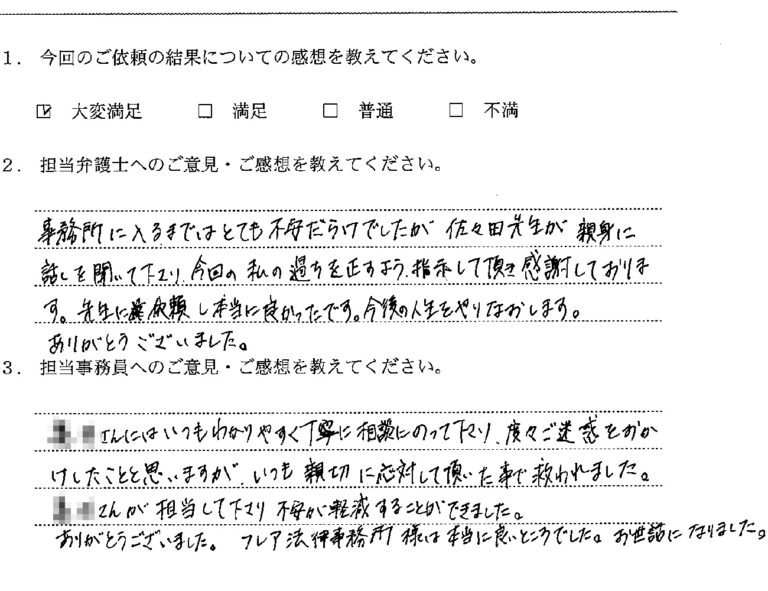 1. 今回のご依頼の結果についての感想を教えてください。
☑ 大変満足 □ 満足 □ 普通 □ 不満
2. 担当弁護士へのご意見・ご感想を教えてください。
事務所に入るまではとても不安だらけでしたが 佐々田先生が 親身に
話しを聞いて下さり、今回の私の過ちを正すよう、指示して頂き感謝しておりま
す。先生に依頼し本当に良かったです。今後の人生をやりなおします。
ありがとうございました。
3. 担当事務員へのご意見・ご感想を教えてください。
さんにはいつもわかりやすく丁寧に相談にのって下さり、度々ご迷惑をおか
けしたことと思いますが、いつも親切に応対して頂いた事で救われました。
さんが担当して下さり不安が軽減することができました。
ありがとうございました。 フレア法律事務所様は本当に良いところでした。お世話になりました。